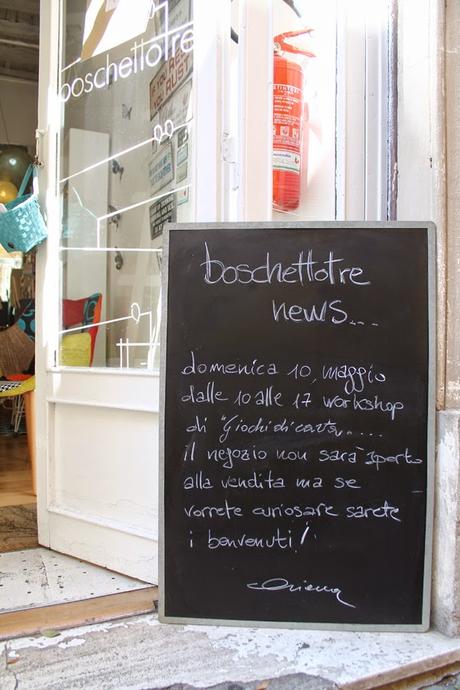 boschettotre
boschettotre
news...
domenica 10, maggio
dalle 10 alle 17 workshop
di "Giochi di carta"....
il negozio non sarà aperto
alla vendita ma se
vorrete curiosare sarete
i benvenuti!